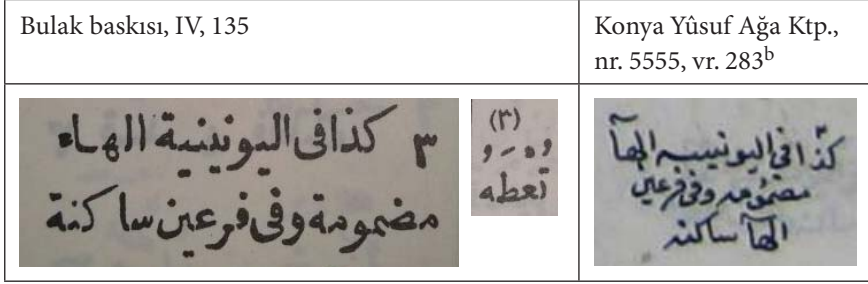 Bulak baskısı, IV, 135
Konya Yûsuf Ağa Ktp.,
nr. 5555, vr. 283b
٣ كذا فى اليونينية الهاء
مضمومة وفى فرعين ساكنة
(٣)
تُعْطَهُ
كذا فى اليونينيه الهآ
مضمومه وفى فرعين
الهآ ساكنه